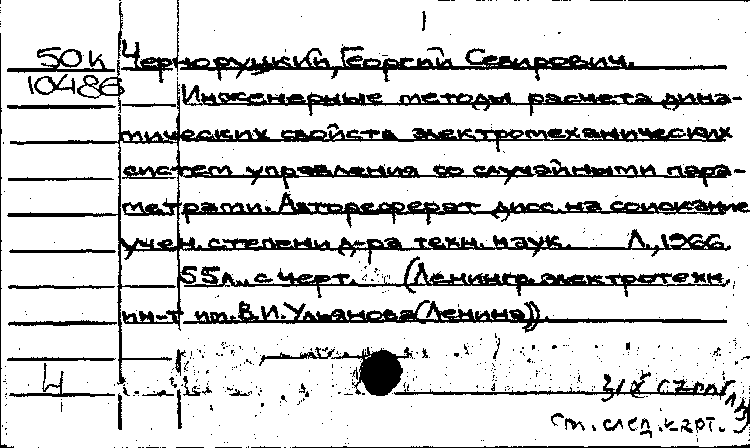 50К Чернорушкий, Георгий Севирович.
10486 Инженерные методы расчета дина-
мических свойств электромеханических
систем управления со случайными пара-
метрами. Автореферат дисс. на соискание
учен. степени д-ра техн. наук. Л., 1966.
55л., с черт. (Ленингр. электротехн.
ин-т им. В.И. Ульянова (Ленина)).
Ч
См. след. карт.